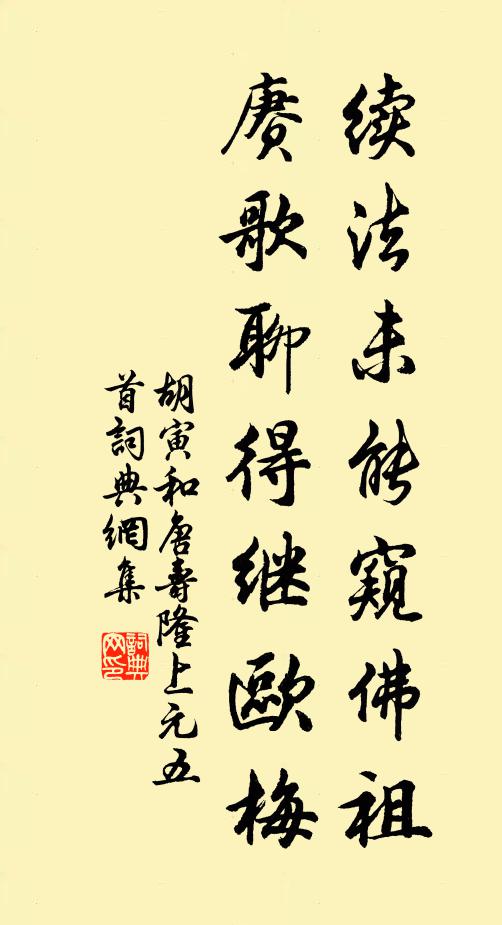 续法未能窥佛祖
赓歌聊得继歐梅
胡寅和唐壽隆上元五
首詞典網集
詞典网印